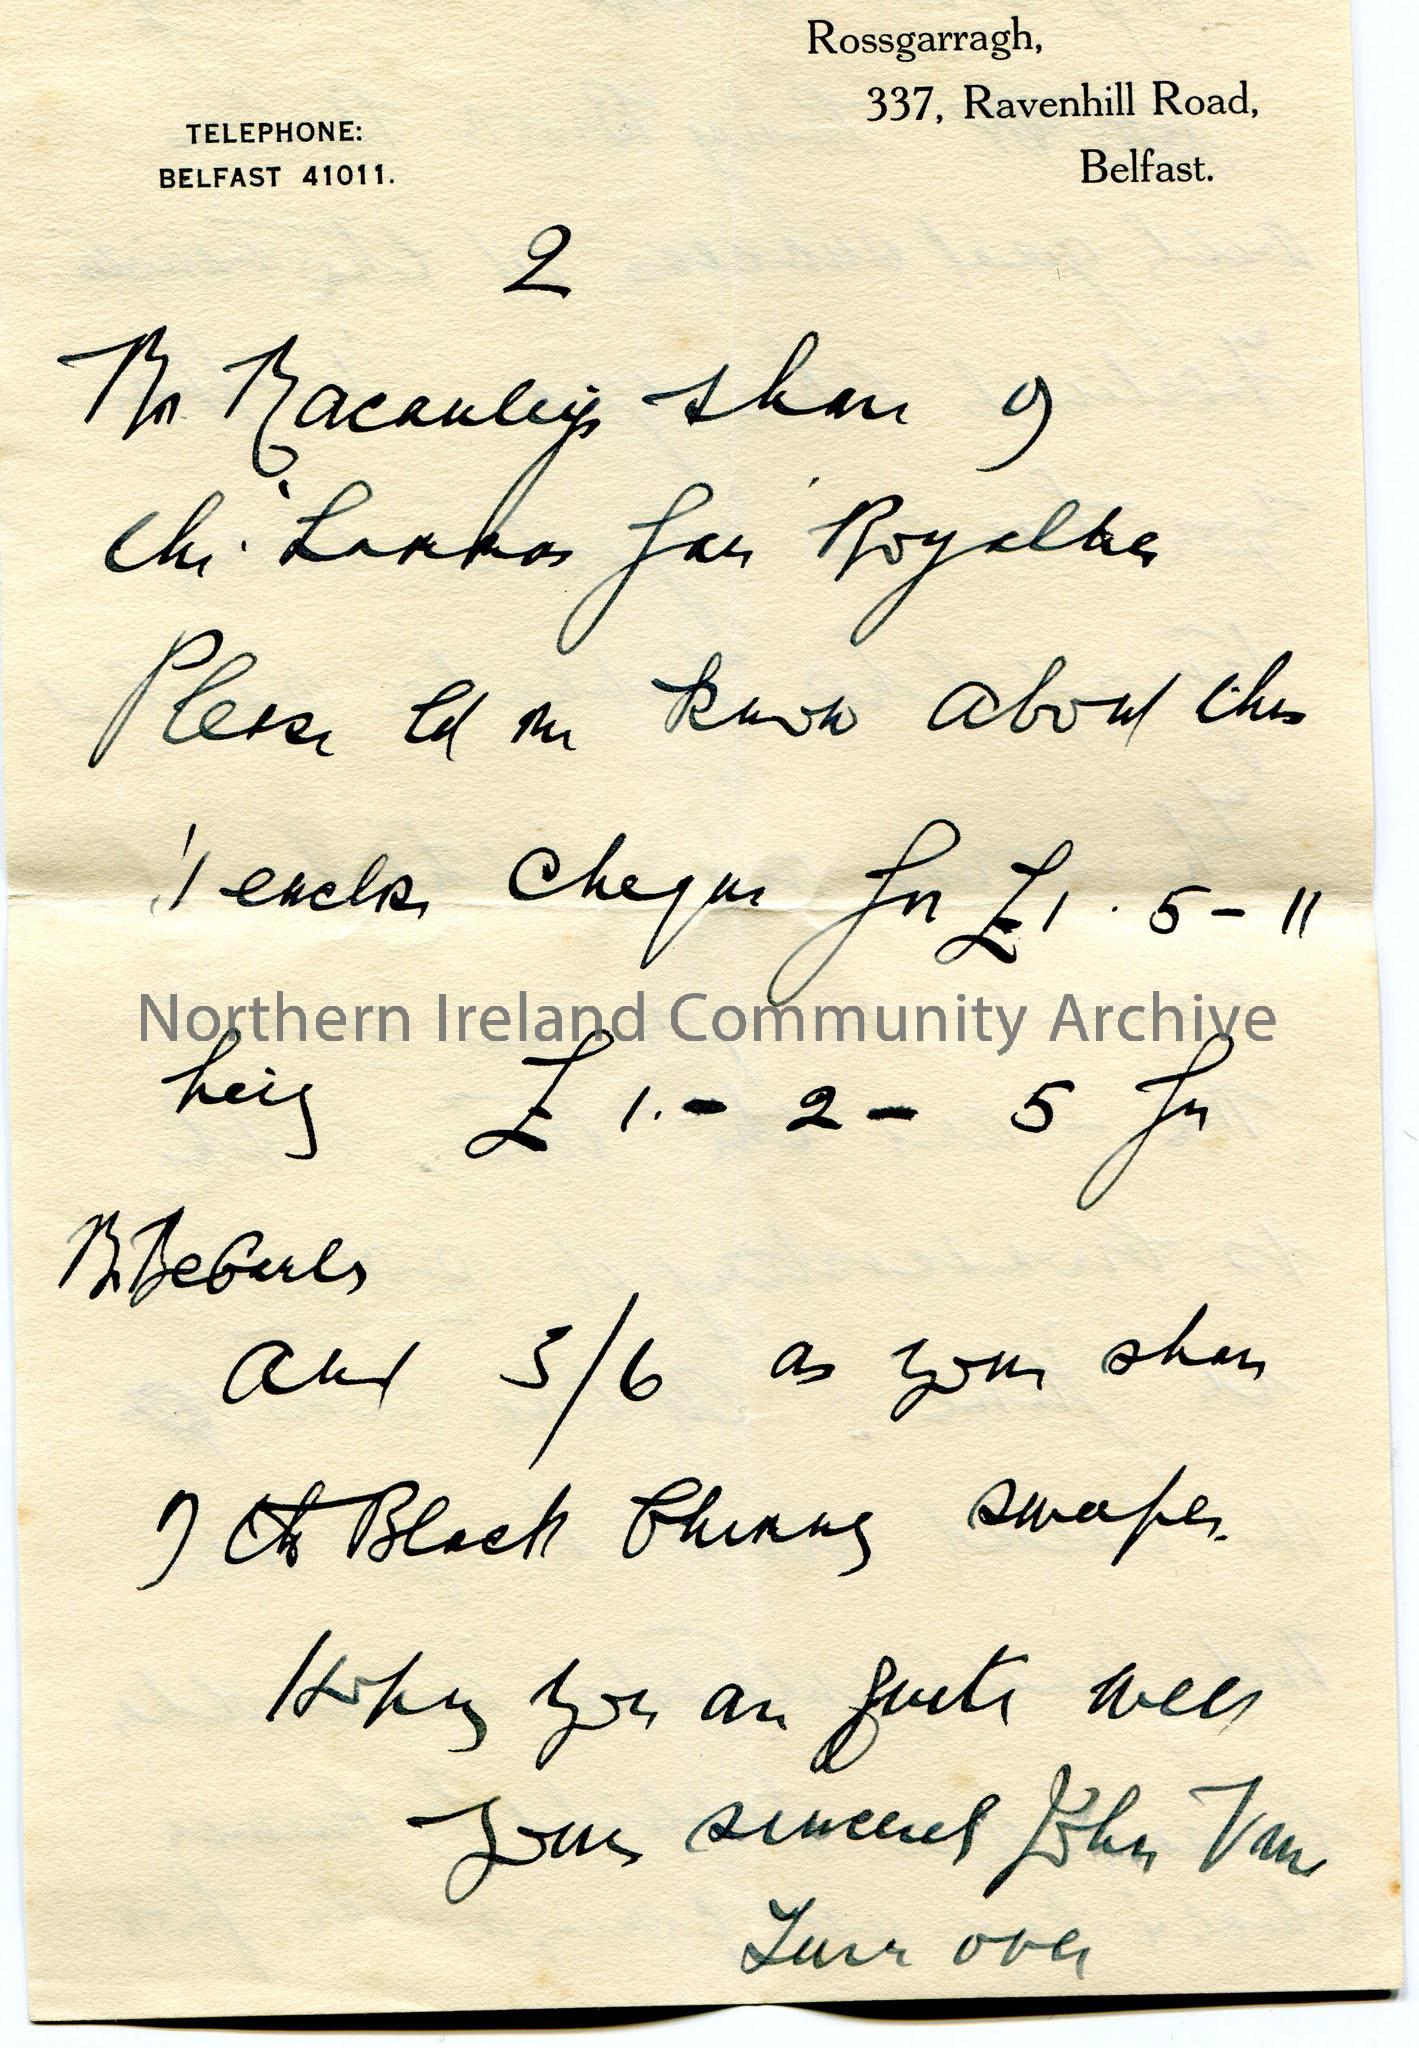 Rossgarragh,
337, Ravenhill Road,
Belfast.
TELEPHONE:
BELFAST 41011.
2
Mr Macauleys share of
the 'Lammas Fair' Royalties
Please let me know about this
I enclose cheque for £1. 5 - 11
being £ 1. - 2 - 5 for
Mr
and 3/6 as your share
of the Black Chimney sweeper.
Hoping you are quite well
Yours sincerely John Vine
Turn over
Northern Ireland Community Archive